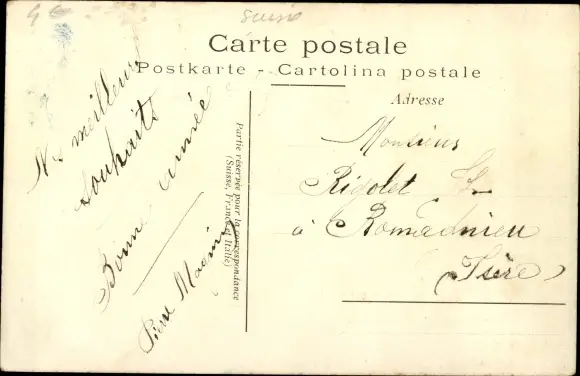 4e
Suisse
Carte postale
Postkarte - Cartolina postale
Adresse
Partie réservée pour la correspondance
(Suisse, France et Italie)
Nos meilleurs
souhaits
Bonne année
Pierre
Monsieur
Rigolet
à Romagnieu
(Isère)